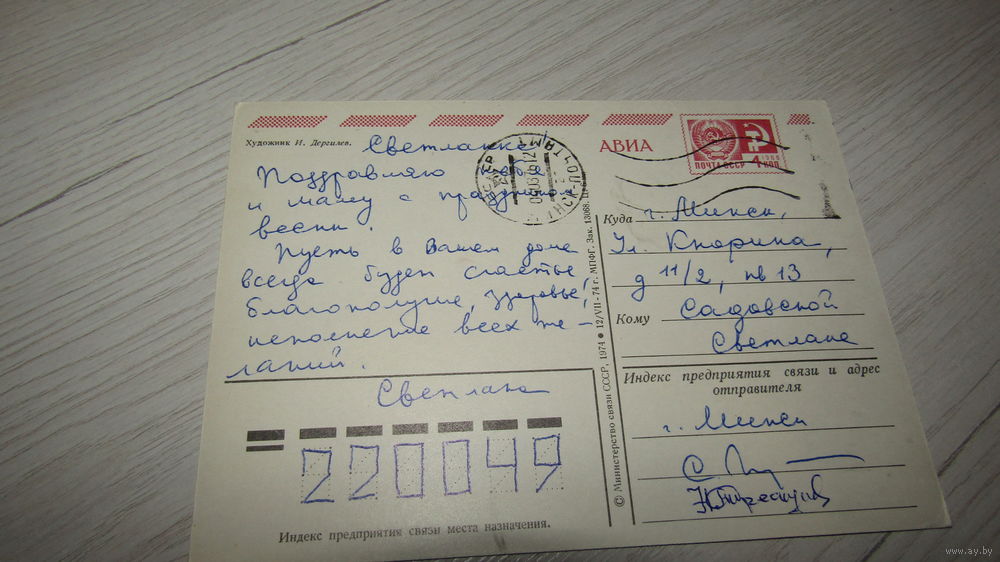 Художник И. Дергилев.
Светланке
Поздравляю тебя
и маму с праздником
весны.
Пусть в Вашем доме
всегда будет счастье,
благополучие, здоровье,
исполнение всех же-
ланий.
Светлана
220049
Индекс предприятия связи места назначения.
© Министерство связи СССР, 1974 ● 12/VII-74 г. МПФГ. Зак. 13068.
АВИА
ПОЧТА СССР 4 КОП.
1966
Куда г. Минск,
Ул. Кнорина,
д 11/2, кв 13
Кому Садовской
Светлане
Индекс предприятия связи и адрес
отправителя
г. Минск
www.ay.by